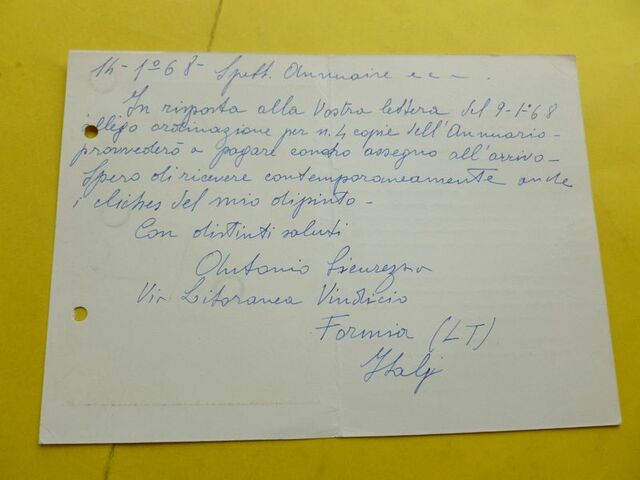 14-1º68- Spett. Annuaire e c -.
In risposta alla Vostra lettera del 9-1-68
allego ordinazione per n. 4 copie dell'Annuario-
provvederò a pagare contro assegno all'arrivo-
Spero di ricevere contemporaneamente anche
i cliches del mio dipinto-
Con distinti saluti
Antonio Sicurezza
Via Litoranea Vindicio
Formia (LT)
Italj